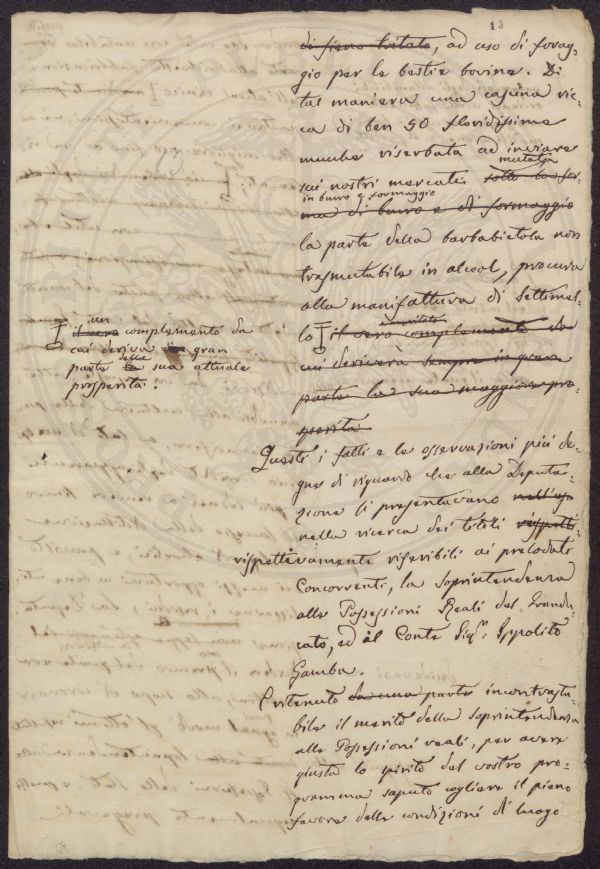 13
di fieno tritato, ad uso di forag-
gio per le bestie bovine. Di
tal maniera una cascina ric-
ca di ben 50 floridissime
mucche riserbata ad inviare
mutata
sui nostri mercati sotto la for-
in burro e formaggio
ma di burro e di formaggio
la parte della barbabietola non
trasmutabile in alcool, procura
alla manifattura di Settimel-
lo il vero complemento da
cui deriverà sempre in gran
parte la sua maggiore pro-
sperità
un
il vero complemento da
cui deriva in gran
parte la sua attuale
della
prosperità.
Questi i fatti e le osservazioni più de-
gne di riguardo che alla Deputa-
zione si presentavano nell'es
nella ricerca dei titoli rispetti-
rispettivamente riferibili ai prelodati
Concorrenti, la soprintendenza
alle Possessioni Reali del Grandu-
cato, ed il Conte Sigr. Ippolito
Gamba.
Pertanto da una parte incontrasta-
bile il merito della Soprintendenza
alle Possessioni reali, per avere
giusta lo spirito del vostro pro-
gramma saputo cogliere il pieno
favore delle condizioni di luogo